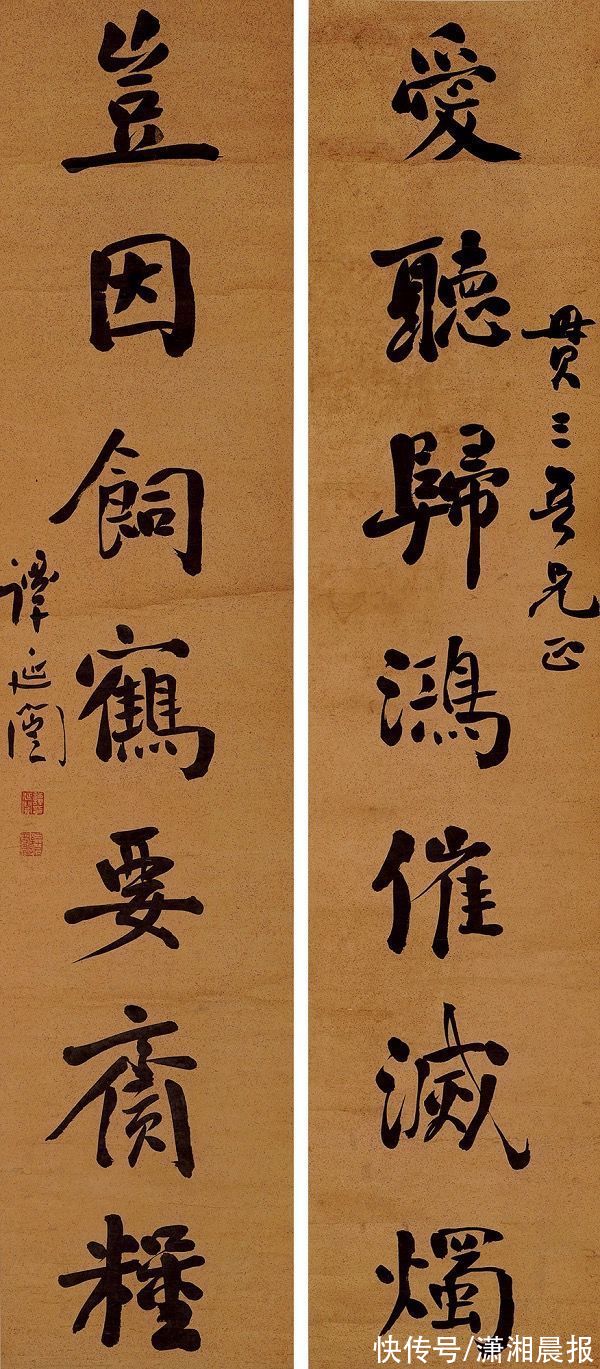 貫三吾兄正
愛聽歸鴻催滅燭
豈因飼鶴要齎糧
譚延闓
快传号/潇湘晨报